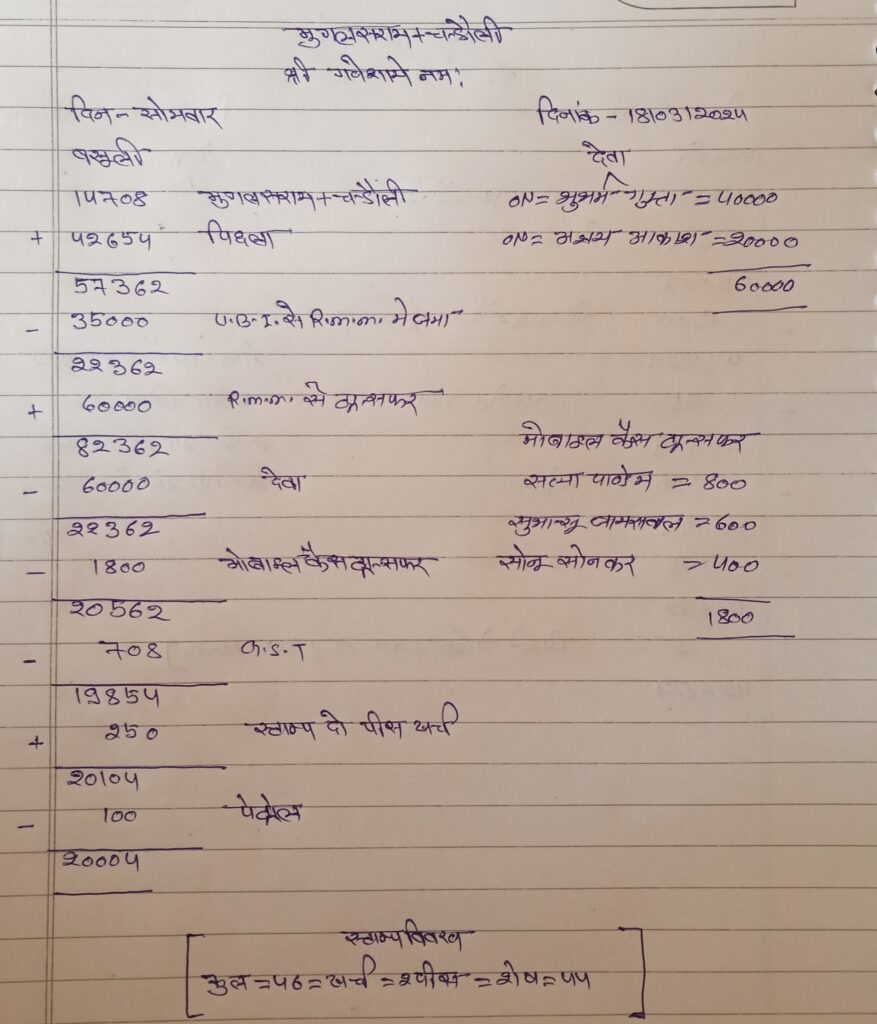 मुगलसराय+चन्दौली
श्री गणेशाये नम:
दिन - सोमबार दिनांक - 18/03/2024
वसूली देवा
14708 मुगलसराय+चन्दौली ON= शुभम गुप्ता = 40000
+ 42654 पिछला ON= आकाश =20000
57362 60000
- 35000 U.B.I. से R.m.m. मे जमा
22362
+ 60000 R.m.m. से ट्रान्सफर
82362 मोबाइल कैस ट्रान्सफर
- 60000 देवा सत्या पाण्डेय = 800
22362 सुभान्सू जायसवाल =600
- 1800 मोबाइल कैस ट्रान्सफर सोनू सोनकर =400
20562 1800
- 708 G.S.T
19854
+ 250 स्टाम्प दो पीस खर्च
20104
- 100 पेट्रोल
20004
स्टाम्प विवरण
कुल =46= खर्च =2पीस = शेष =44